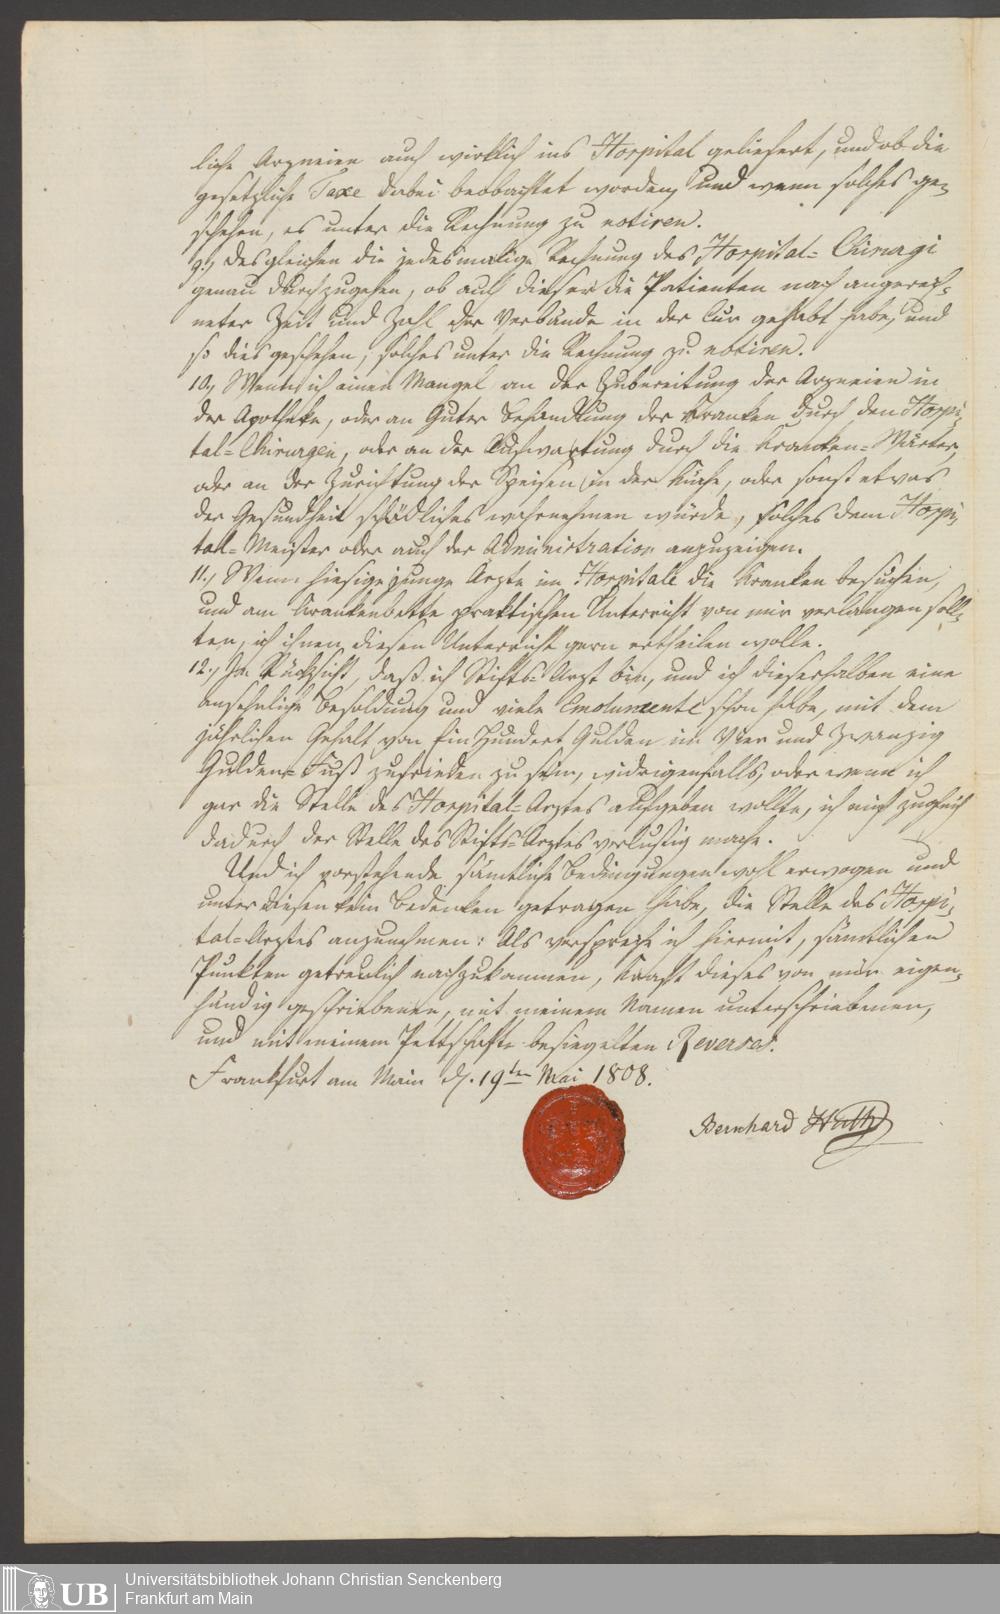 liche Arzneien auch wirklich ins Hospital geliefert, und ob die
gesetzliche Taxe dabei beobachtet worden, und wenn solches ge-
schehen, es unter die Rechnung zu notiren.
9., desgleichen die jedesmalige Rechnung des Hospital-Chirurgi
genau durchzugehen, ob auch dieser die Patienten nach angerech-
neter Zeit und Zahl der Verbände in der Cur gehabt habe, und
so dies geschehen, solches unter die Rechnung zu notiren.
10., Wenn ich einen Mangel an der Zubereitung der Arzneien in
der Apotheke, oder an Guter Behandlung der Kranken durch den Hospi-
tal-Chirurgen, oder an der Aufwartung durch die Kranken-Wärter,
oder an der Zurichtung der Speisen in der Küche, oder sonst etwas
der Gesundheit schädliches wahrnehmen würde, solches dem Hospi-
tal-Meister oder auch der Administration anzuzeigen.
11., Wenn hiesige junge Ärzte im Hospitale die Kranken besuchen,
und am Krankenbette praktischen Unterricht von mir verlangen soll-
ten, ich ihnen diesen Unterricht gern ertheilen wolle.
12., In Rücksicht, daß ich Stifts-Arzt bin, und ich dieserhalben eine
ansehnliche Besoldung und viele Emolumente schon habe, mit dem
jährlichen Gehalt von Ein Hundert Gulden im Vier und Zwanzig
Gulden-Fuß zufrieden zu sein, widrigenfalls, oder wenn ich
gar die Stelle des Hospital-Arztes aufgeben wollte, ich mich zugleich
dadurch der Stelle des Stifts-Arztes verlustig mache.
Und ich vorstehende sämtliche Bedingungen wohl erwogen und
unter diesen kein Bedenken getragen habe, die Stelle des Hospi-
tal-Arztes anzunehmen: Als verspreche ich hiermit, sämtlichen
Punkten getreulich nachzukommen, Kraft dieses von mir eigen-
händig geschriebenen, mit meinem Namen unterschriebenen,
und mit meinem Pettschafte besiegelten Reverses.
Frankfurt am Main d. 19ten Mai 1808.
Bernhard Huth
UB
Universitätsbibliothek Johann Christian Senckenberg
Frankfurt am Main